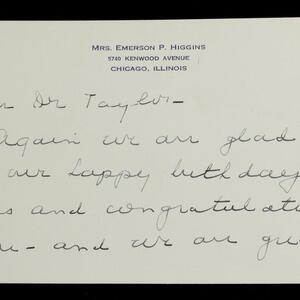 MRS. EMERSON P. HIGGINS
5740 KENWOOD AVENUE
CHICAGO, ILLINOIS
Dr Taylor-
Again we are glad
our happy birthday
and congratulati
- and we are